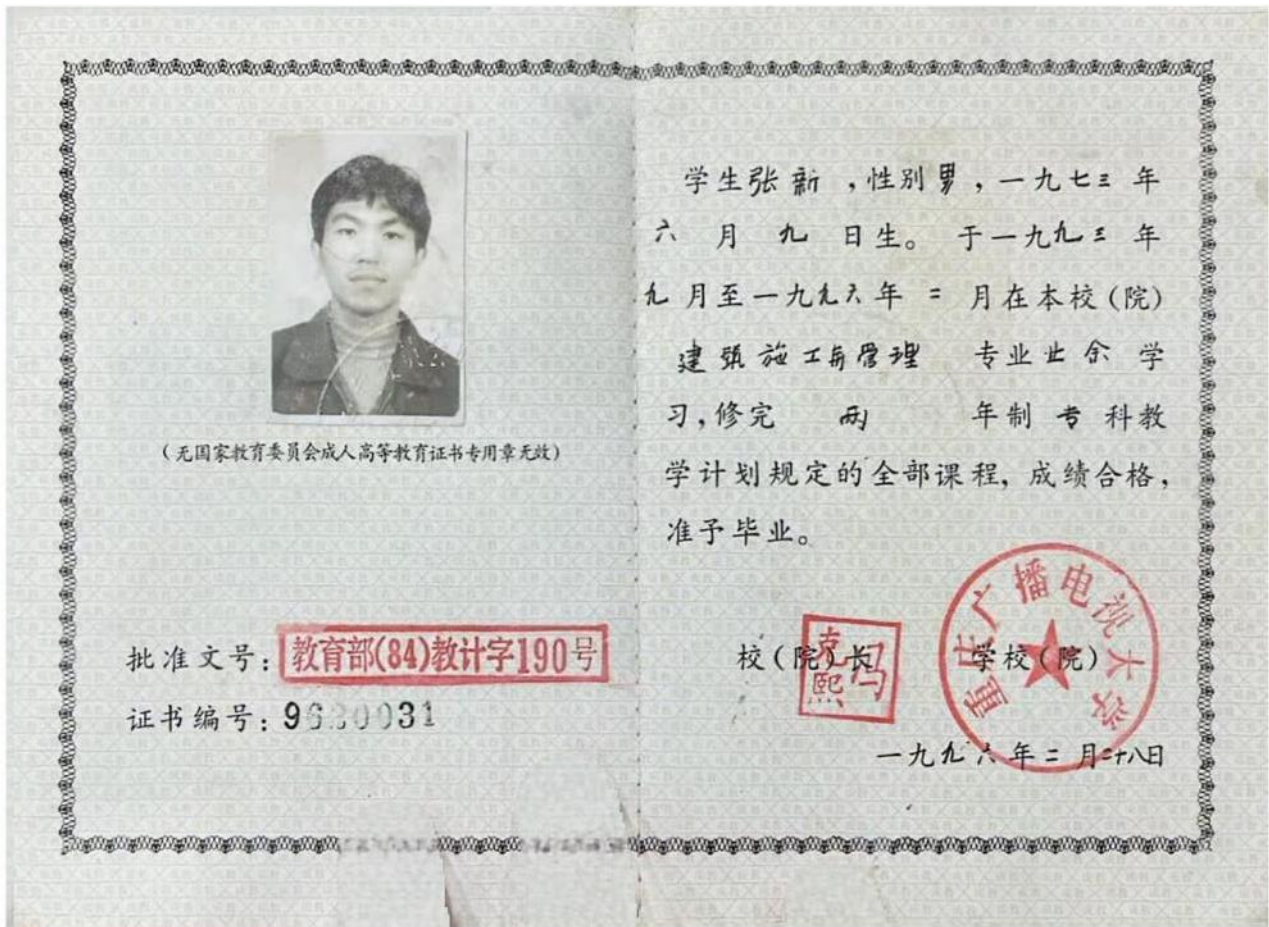 (无国家教育委员会成人高等教育证书专用章无效)
批准文号: 教育部(84)教计字190号
证书编号: 9620031
学生张新,性别男,一九七三年
六月九日生。于一九九三年
九月至一九九六年二月在本校(院)
建筑施工与管理 专业业余学
习,修完 两 年制专科教
学计划规定的全部课程,成绩合格,
准予毕业。
校(院)长 冯克熙
学校(院)
重庆广播电视大学
一九九六年二月二十八日